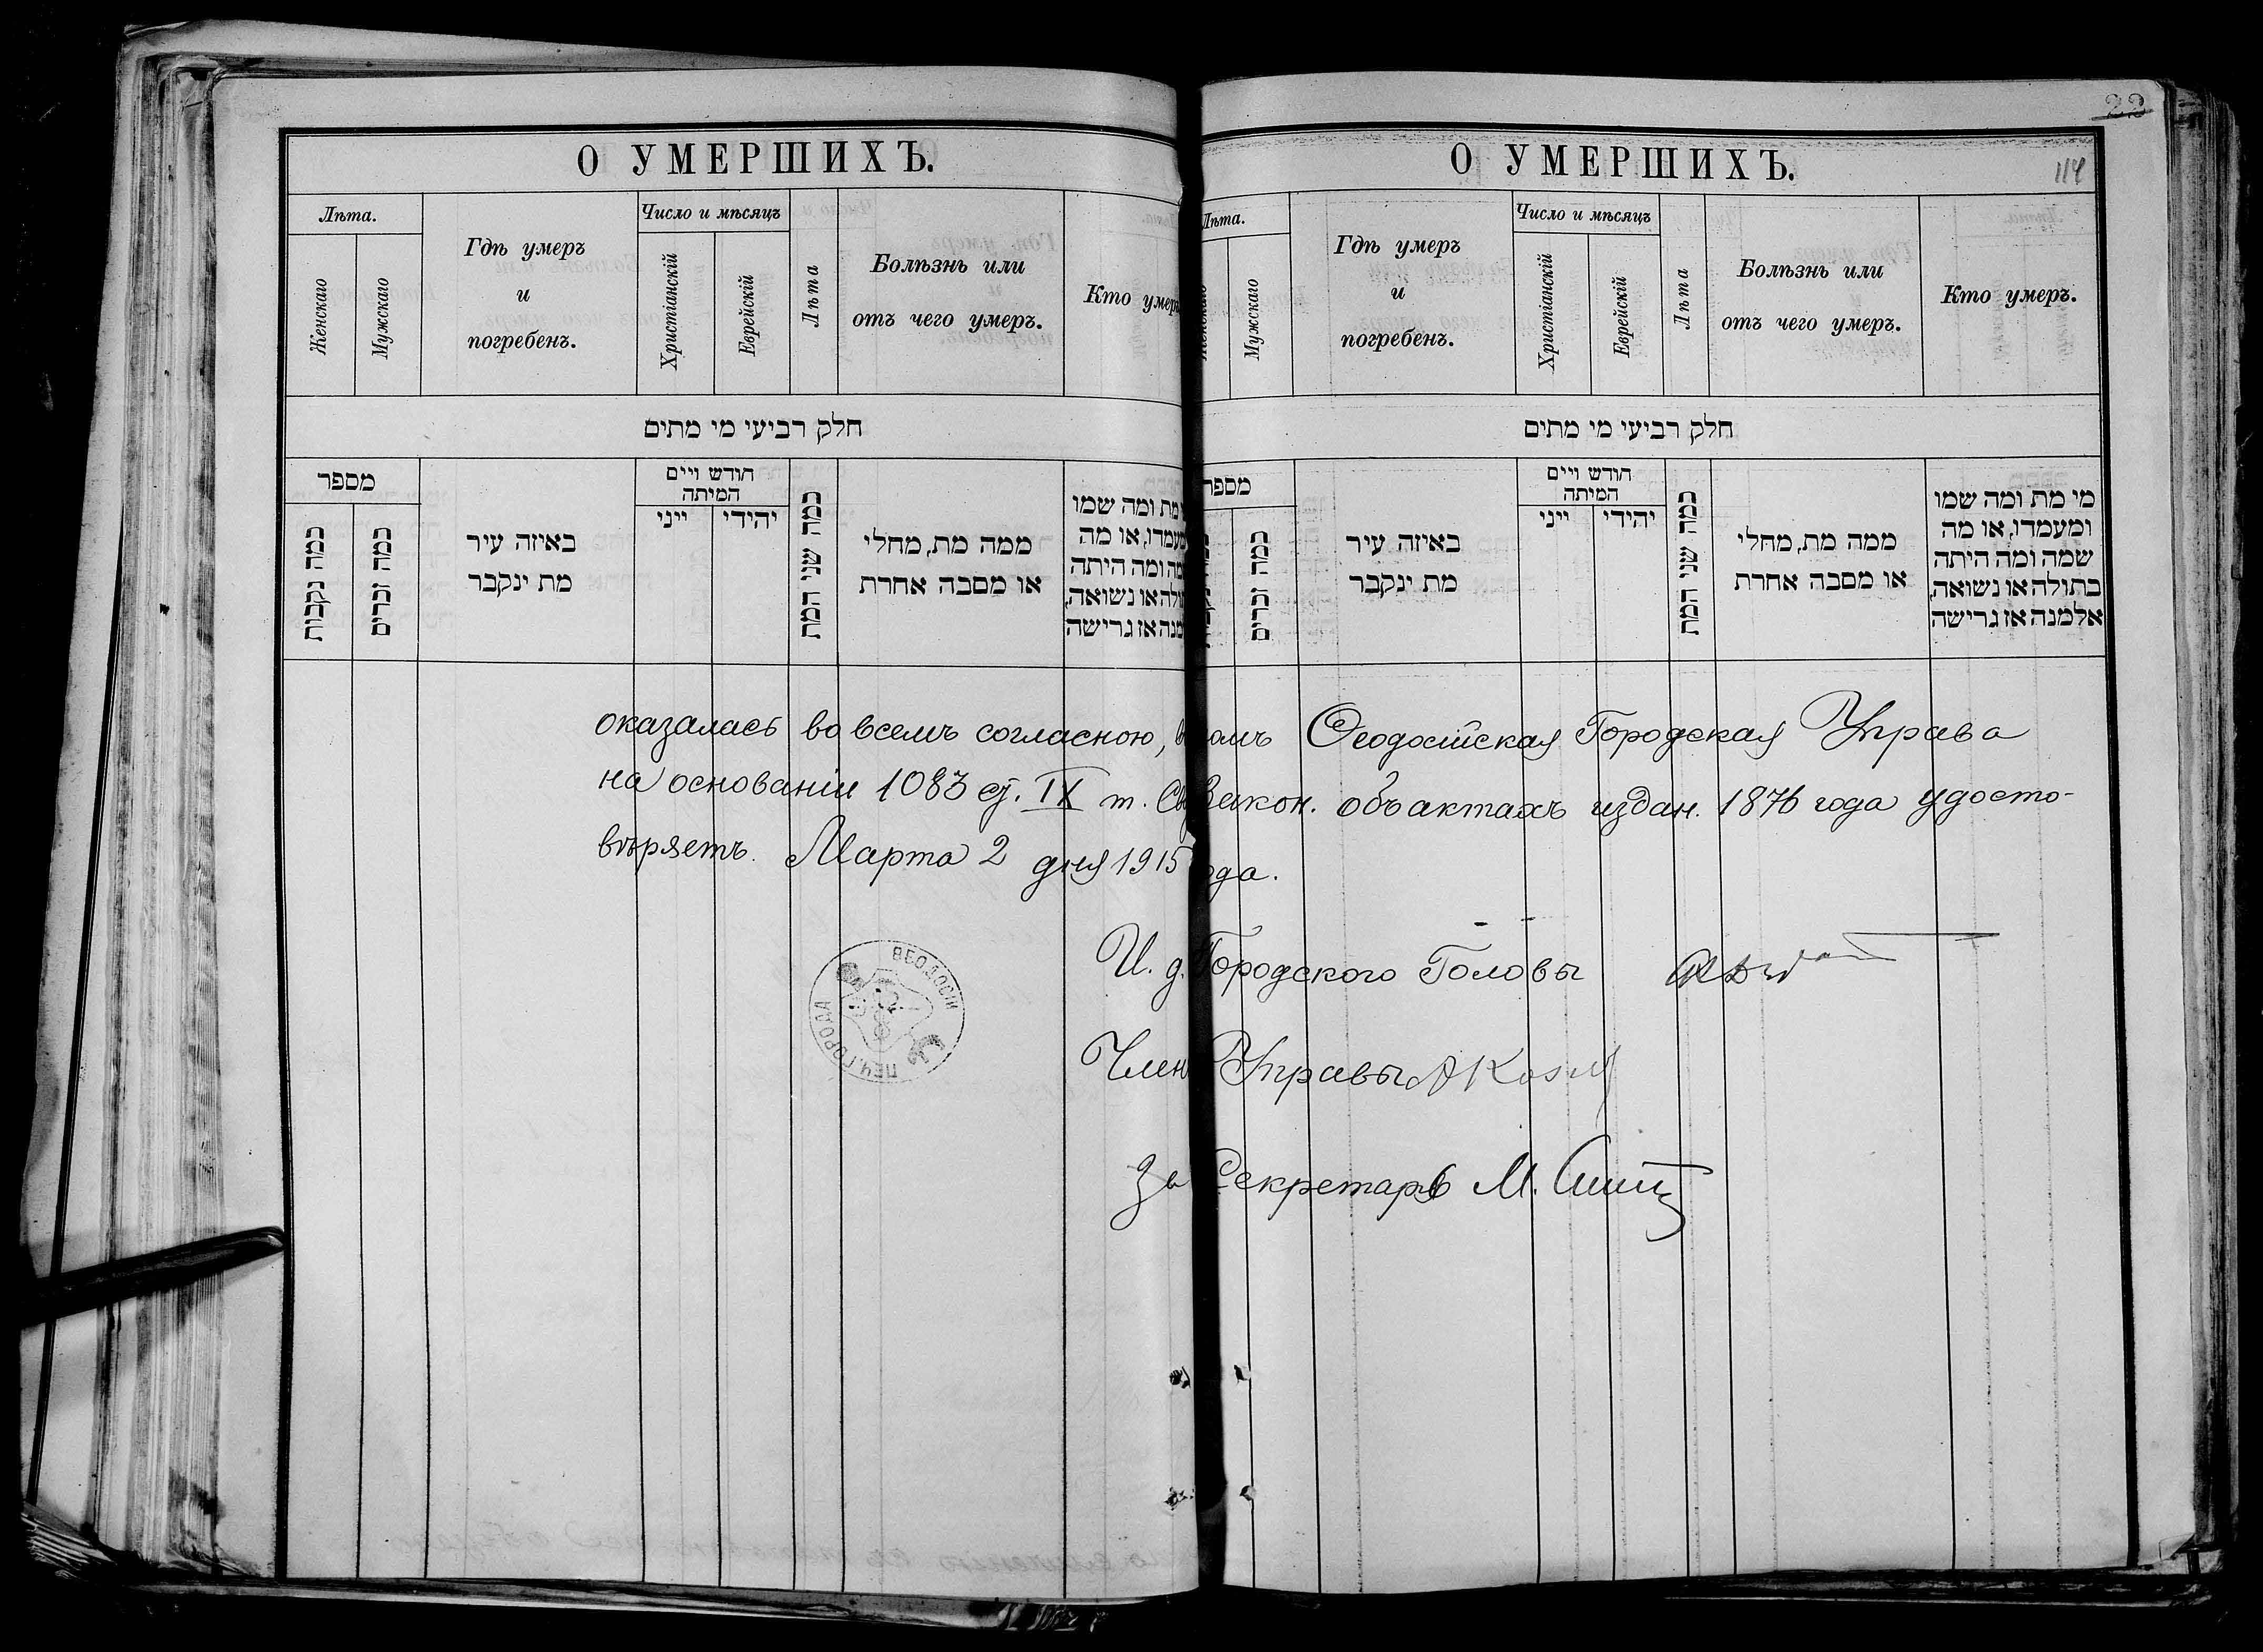 22
О УМЕРШИХЪ.
Лѣта.
Женскаго
Мужскаго
Гдѣ умеръ
и
погребенъ.
Число и мѣсяцъ
Христіанскій
Еврейскій
Лѣта
Болѣзнь или
отъ чего умеръ.
Кто умер
חלק רביעי מי מתים
מספר
כמה נקבות
כמה זכרים
באיזה עיר
מת ינקבר
חודש ויים
המיתה
ייני
יהידי
כמה שני המת
ממה מת, מחלי
או מסבה אחרת
מת ומה שמו
מעמדו, או מה
מה ומה היתה
ולה או נשואה,
מנה אז גרישה
О УМЕРШИХЪ.
114
Лѣта.
Женскаго
Мужскаго
Гдѣ умеръ
и
погребенъ.
Число и мѣсяцъ
Христіанскій
Еврейскій
Лѣта
Болѣзнь или
отъ чего умеръ.
Кто умеръ.
חלק רביעי מי מתים
מספר
כמה זכרים
באיזה עיר
מת ינקבר
חודש ויים
המיתה
ייני
יהידי
כמה שני המת
ממה מת, מחלי
או מסבה אחרת
מי מת ומה שמו
ומעמדו, או מה
שמה ומה היתה
בתולה או נשואה,
אלמנה אז גרישה
оказалась во всемъ согласною, в омъ Ѳеодосійская Городская Управа
на основаніи 1083 ст. IX т. Св Закон. объ актахъ издан. 1876 года удосто-
вѣряетъ. Марта 2 дня 1915 ода.
И. д. Городского Головы
Член Управы
За Секретаря М.
ПЕЧ. ГОРОДА ѲЕОДОСІИ